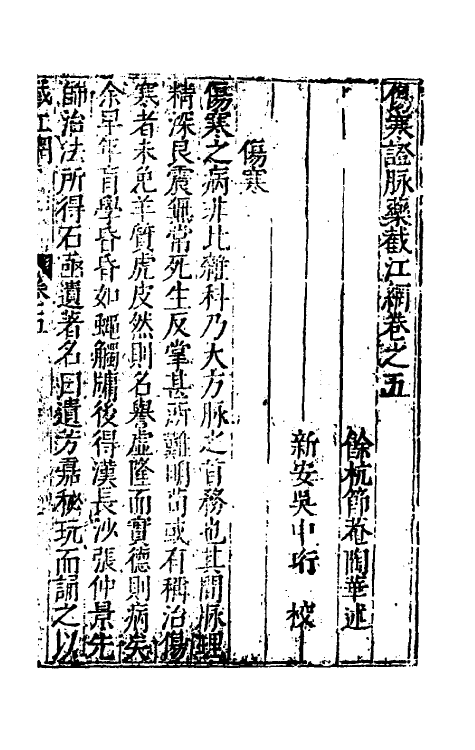 傷寒證脉藥截江網卷之五
餘杭節菴陶華述
新安吳中珩　校
傷寒
傷寒之病非比雜科乃大方脉之首務也其間脉理
精深良震無常死生反掌甚所難明尚或有稱治傷
寒者未免羊質虎皮然則名譽虛隆而實德則病矣
余早年盲學昏昏如蠅觸牖後得漢長沙張仲景先
師治法所得石函遺著名曰遺方嘉秘玩而誦之以
截江網　卷五